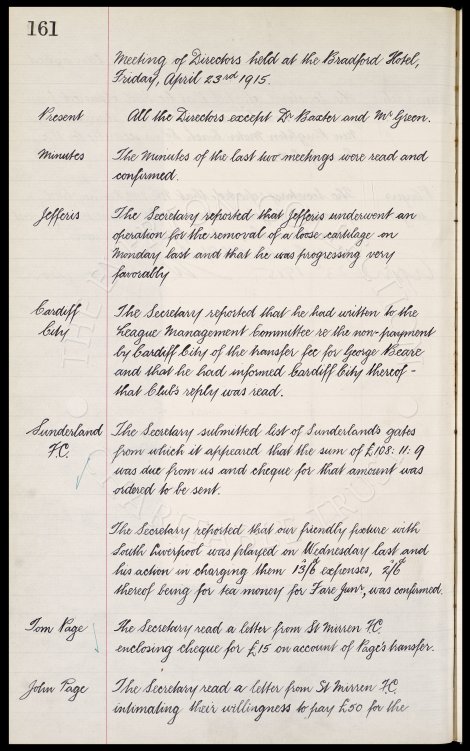 161
Meeting of Directors held at the Bradford Hotel,
Friday, April 23rd 1915.
Present All the Directors except Dr Baxter and Mr Green.
Minutes The Minutes of the last two meetings were read and
confirmed.
Jefferis The Secretary reported that Jefferis underwent an
operation for the removal of a loose cartilage on
Monday last and that he was progressing very
favorably
Cardiff The Secretary reported that he had written to the
City League Management Committee re the non-payment
by Cardiff City of the transfer fee for George Beare
and that he had informed Cardiff City thereof -
that Club's reply was read.
Sunderland The Secretary submitted list of Sunderland's gates
F.C. from which it appeared that the sum of £108: 11: 9
was due from us and cheque for that amount was
ordered to be sent.
The Secretary reported that our friendly fixture with
South Liverpool was played on Wednesday last and
his action in charging them 13/6 expenses, 2/6
thereof being for tea money for Fare Junr, was confirmed.
Tom Page The Secretary read a letter from St Mirren F.C.
enclosing cheque for £15 on account of Page's transfer.
John Page The Secretary read a letter from St Mirren F.C.
intimating their willingness to pay £50 for the